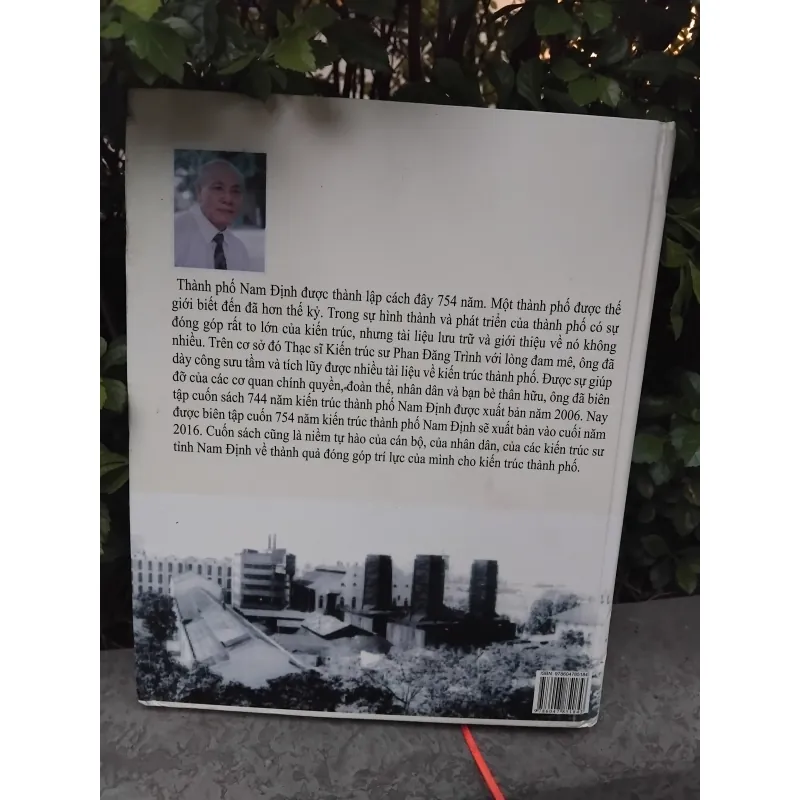 Thành phố Nam Định được thành lập cách đây 754 năm. Một thành phố được thế
giới biết đến đã hơn thế kỷ. Trong sự hình thành và phát triển của thành phố có sự
đóng góp rất to lớn của kiến trúc, nhưng tài liệu lưu trữ và giới thiệu về nó không
nhiều. Trên cơ sở đó Thạc sĩ Kiến trúc sư Phan Đăng Trình với lòng đam mê, ông đã
dày công sưu tầm và tích lũy được nhiều tài liệu về kiến trúc thành phố. Được sự giúp
đỡ của các cơ quan chính quyền, đoàn thể, nhân dân và bạn bè thân hữu, ông đã biên
tập cuốn sách 744 năm kiến trúc thành phố Nam Định được xuất bản năm 2006. Nay
được biên tập cuốn 754 năm kiến trúc thành phố Nam Định sẽ xuất bản vào cuối năm
2016. Cuốn sách cũng là niềm tự hào của cán bộ, của nhân dân, của các kiến trúc sư
tỉnh Nam Định về thành quả đóng góp trí lực của mình cho kiến trúc thành phố.
ISBN